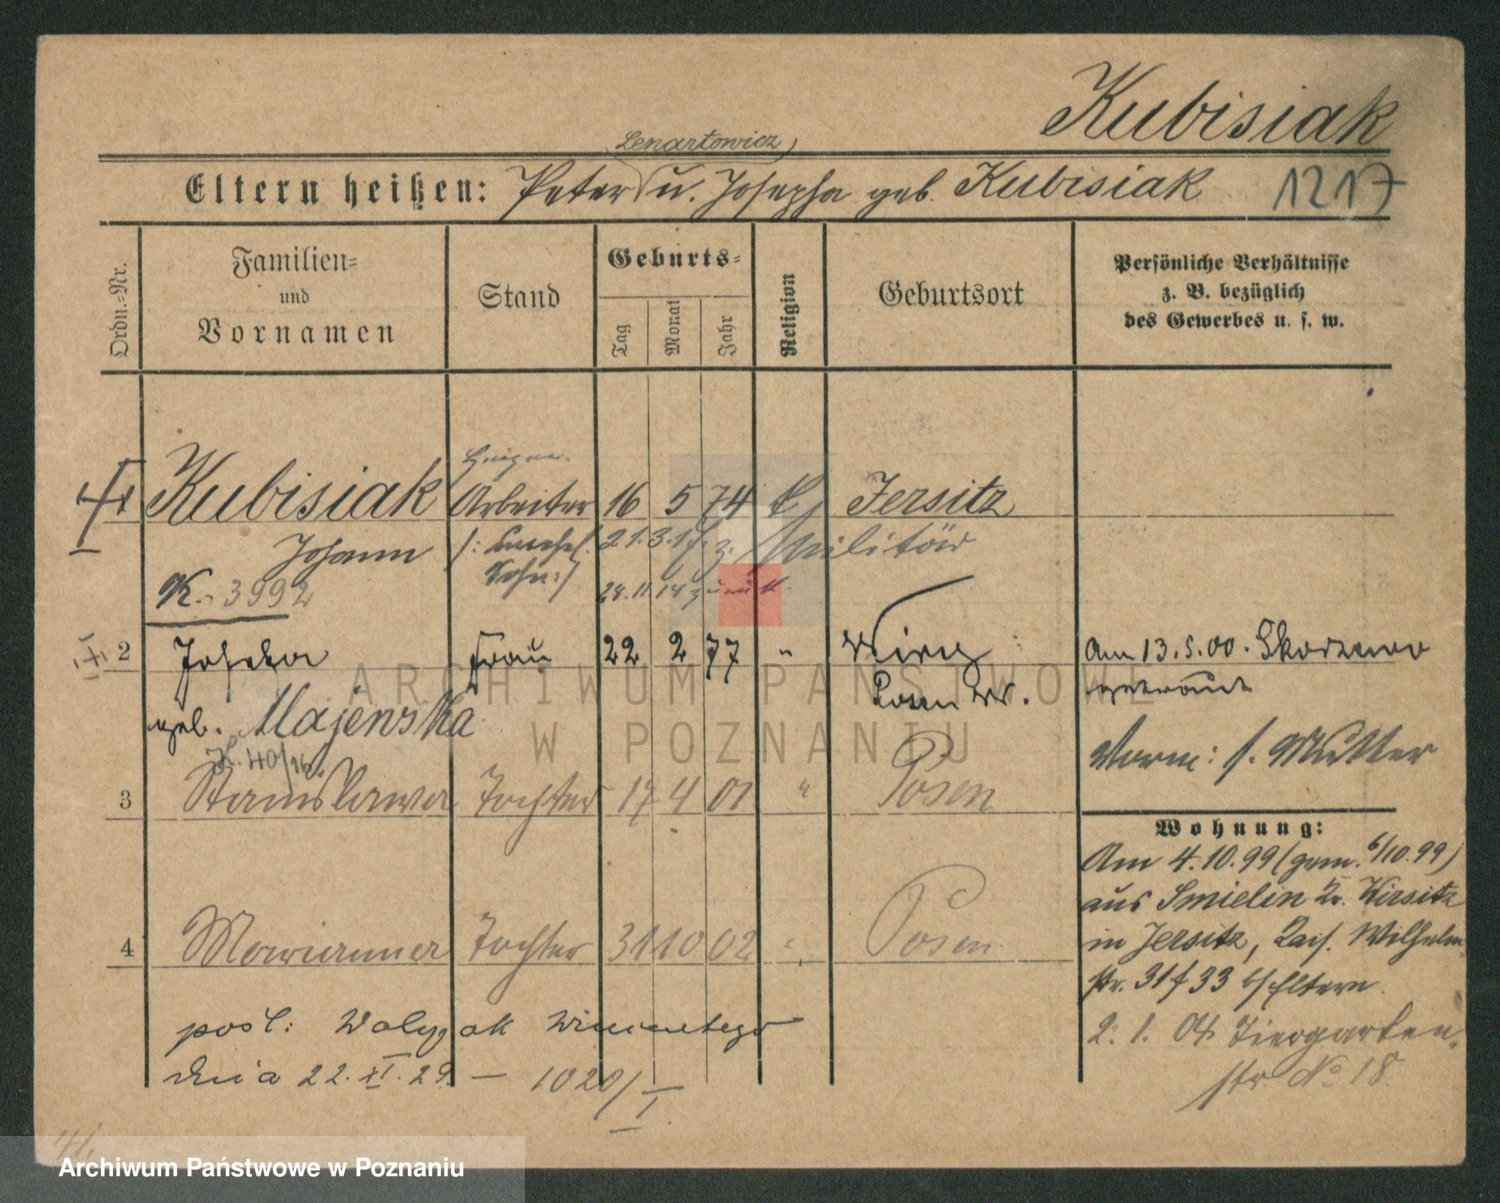 Kubisiak
Lenartowicz
Eltern heißen: Peter u. Josepha geb. Kubisiak 1217
Ordn.-Nr.
Familien-
und
Vornamen
Stand
Geburts-
Tag
Monat
Jahr
Religion
Geburtsort
Persönliche Verhältnisse
z. B. bezüglich
des Gewerbes u. s. w.
Kubisiak Arbeiter 16 5 74 k Jersitz
Johann 21.3. z. Militär
K. 3992 28.11.18 zurück
2 Josefa Frau 22 2 77 " Wiry Am 13.5.00.
Posen W. getraut
geb. Majewska
K. 40/16. Vorm: s. Mutter
3 Stanislawa Tochter 17 4 01 " Posen
Wohnung:
Am 4.10.99 (gem. 6/10.99)
aus Smielin Kr. Wirsitz
4 Marianna Tochter 31 10 02 " Posen
in Jersitz, Kais. Wilhelm-
str. 31/33 b/Eltern.
2. 1. 04 Tiergarten-
str No 18
dnia 22. XI. 29. — 1020/I
ARCHIWUM PAŃSTWOWE
W POZNANIU
Archiwum Państwowe w Poznaniu